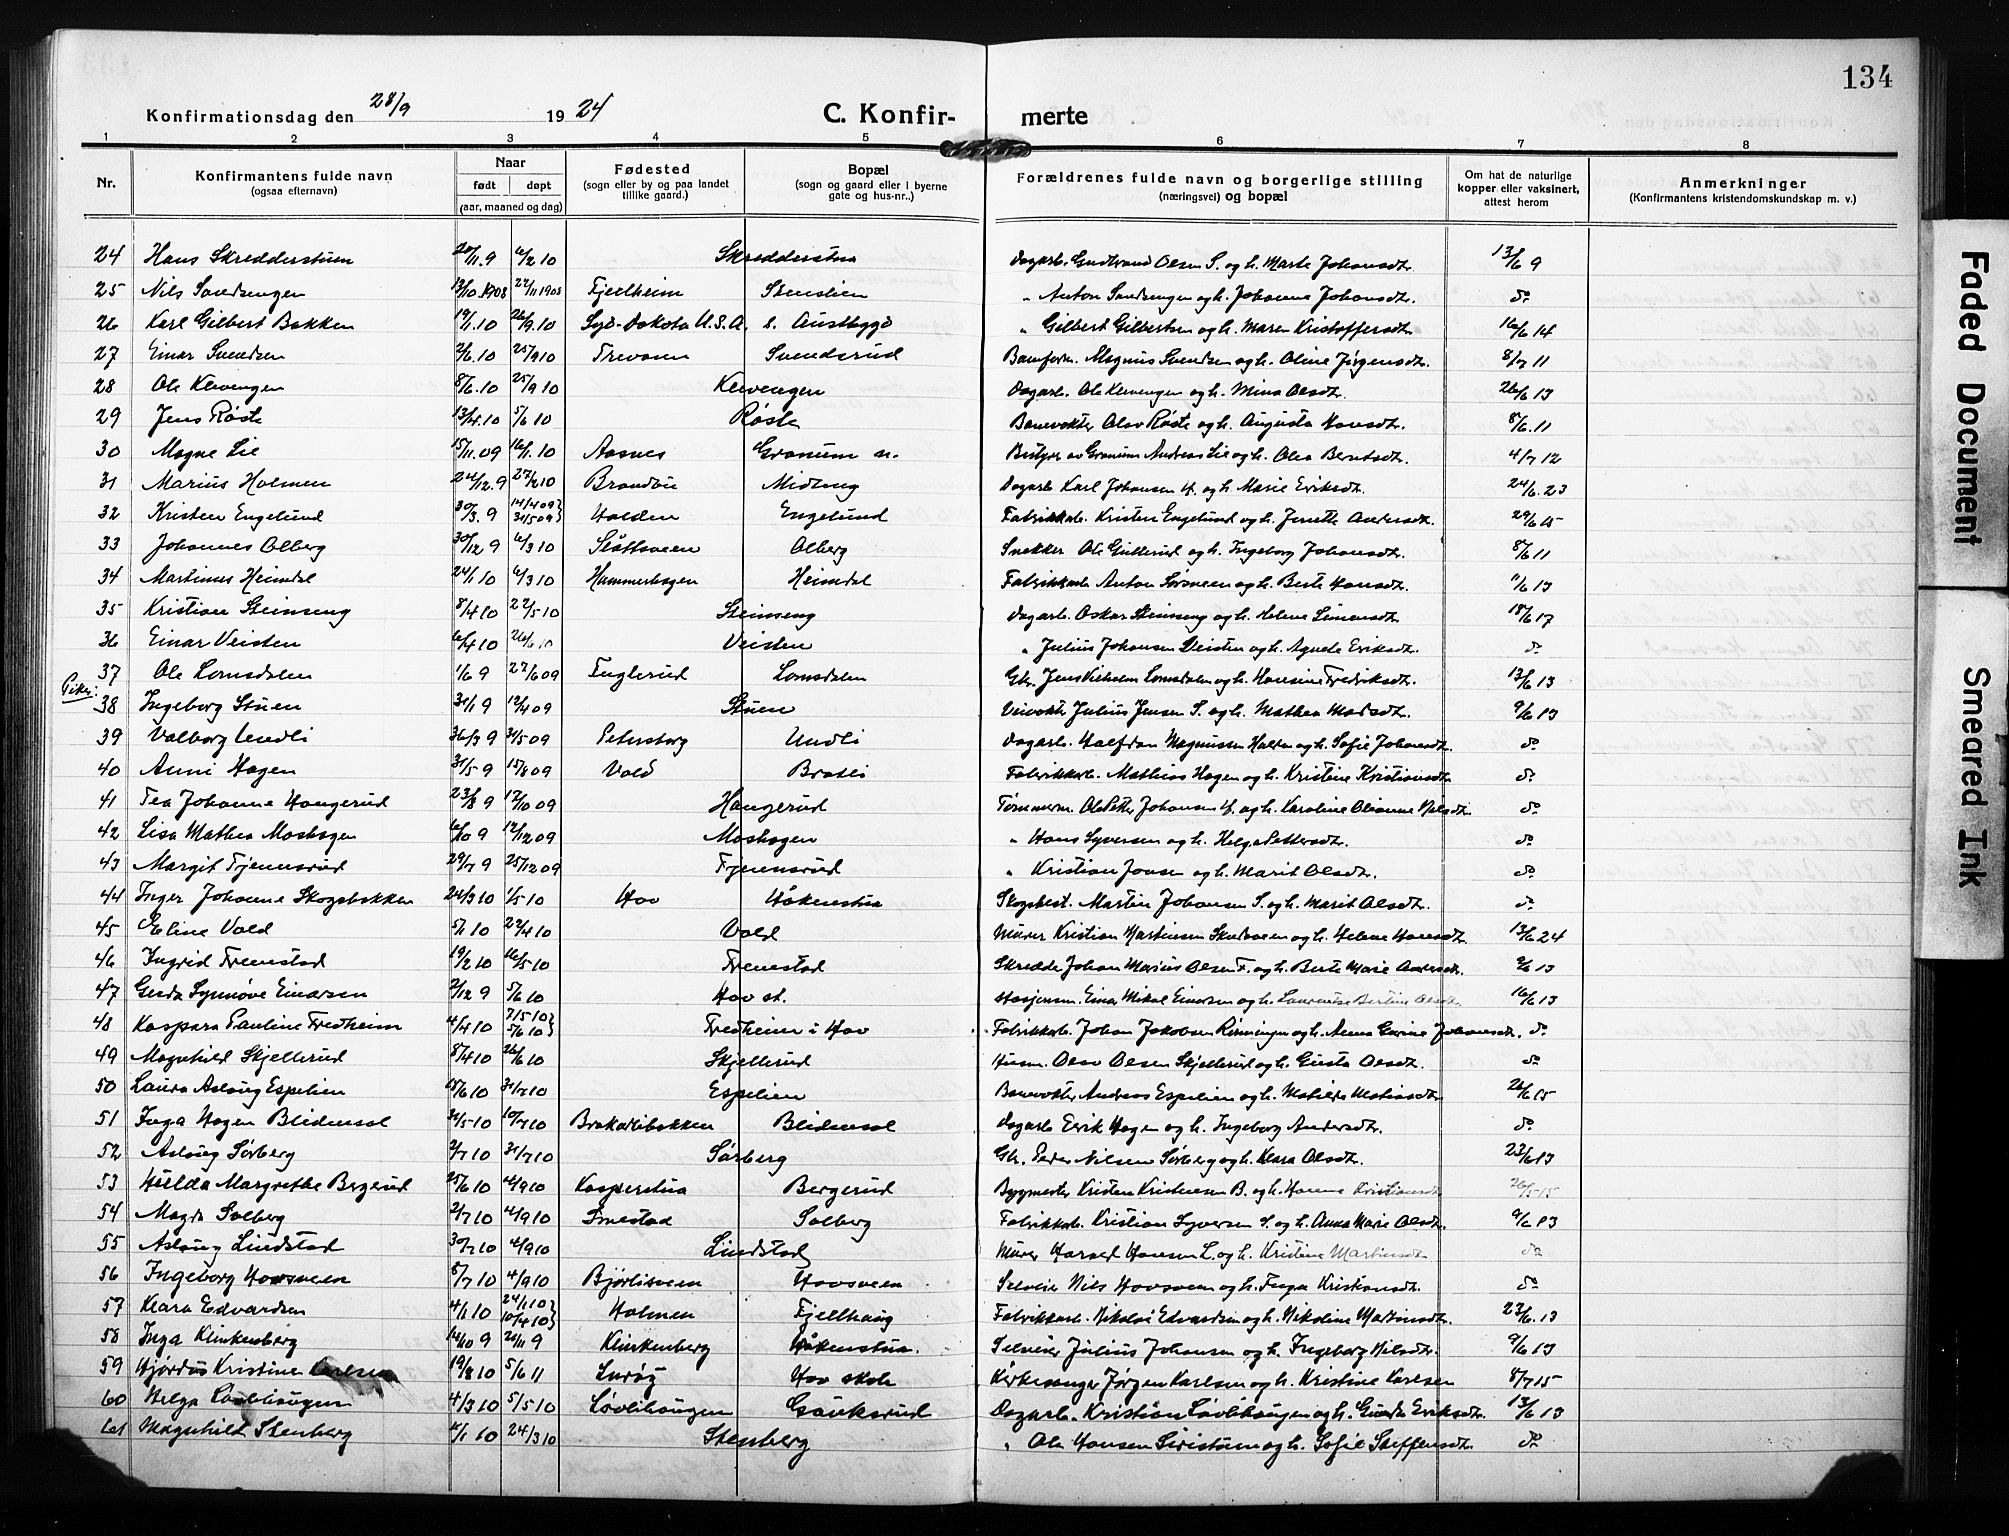 134
Konfirmationsdag den 28/9 1924 C. Konfir- merte
1 2 3 4 5 6 7 8
Nr. Konfirmantens fulde navn (ogsaa efternavn) Naar født døpt (aar, maaned og dag) Fødested (sogn eller by og paa landet tillike gaard.) Bopæl (sogn og gaard eller i byerne gate og hus-nr..) Forældrenes fulde navn og borgerlige stilling (næringsvei) og bopæl Om hat de naturlige kopper eller vaksinert, attest herom Anmerkninger (Konfirmantens kristendomskundskap m. v.)
24 Hans Skredderstuen 20/11.9 6/2 10 Skredderstua Dagarb. Gudbrand Olsen S. og h. Marte Johansdt. 13/6 9
25 Nils Sandsengen 13/10.1908 22/11 1908 Fjellheim Stenslien " Anton Sandsengen og h. Johanne Johansdt. do
26 Karl Gilbert Bakken 19/1.10 26/9.10 Syd-Dakota U.S.A. s. Austbygd " Gilbert Gilbertsen og h. Maren Kristoffersdt. 16/6 14
27 Einar Svendsen 2/6.10 25/9 10 Trevann Svendsrud Baneform. Magnus Svendsen og h. Oline Jørgensdt. 8/7 11
28 Ole Klevengen 8/6.10 25/9 10 Klevengen Dagarb. Ole Klevengen og h. Mina Olsdt. 26/6 13
29 Jens Røste 13/4.10 5/6 10 Røste Banevokter Olav Røste og h. Augusta Hansdt. 8/6.11
30 Magne Lie 15/11.09 16/1.10 Aasnes Granum n. Bestyrer av Granum Andreas Lie og h. Olea Berntsdt. 4/7 12
31 Marius Holmen 24/12.9 27/2 10 Brandbu Midteng Dagarb. Karl Johansen H. og h. Marie Eriksdt. 24/6.23
32 Kristen Engelund 30/3.9 14/4 09} 31/5 09} Halden Engelund Fabrikkarb. Kristen Engelund og h. Jenette Andersdt. 29/6 15
33 Johannes Olberg 30/12 9 6/3 10 Slåttsveen Olberg Snekker Ole Gullerud og h. Ingeborg Johansdt. 8/6 11
34 Martinus Heimdal 24/1 10 6/3 10 Hammerhagen Heimdal Fabrikkarb. Anton Sørsveen og h. Berte Hansdt. 11/6 13
35 Kristian Steinseng 8/4 10 22/5 10 Steinseng Dagarb. Oskar Steinseng og h. Helene Simensdt. 18/6 17
36 Einar Veisten 6/4 10 26/6 10 Veisten " Julius Johansen Veisten og h. Agnete Eriksdt. do
37 Ole Lomsdalen 1/6 9 27/6 09 Fuglerud Lomsdalen Gbr. Jens Vilhelm Lomsdalen og h. Hansine Fredriksdt. 13/6 13
Piker:
38 Ingeborg Stuen 31/1 9 12/4 09 Stuen Veivokter Julius Jensen S. og h. Mathea Madsdt. 9/6 13
39 Valborg Undli 26/3 9 31/5 09 Petersborg Undli Dagarb. Halfdan Magnussen Halden og h. Sofie Johansdt. do
40 Anni Hagen 31/5 9 15/8 09 Vold Bratli Fabrikkarb. Mathias Hagen og h. Kristine Kristiansdt. do
41 Tea Johanne Haugerud 23/8 9 17/10 09 Haugerud Tømmerm. Ole Petter Johansen H. og h. Karoline Olianne Nilsdt. do
42 Lisa Mathea Moshagen 6/10 9 12/12 09 Moshagen " Hans Syversen og h. Helga Pettersdt. do
43 Margit Tjernsrud 29/7 9 25/12 09 Tjernsrud " Kristian Jonsen og h. Marit Olsdt. do
44 Inger Johanne Skogsbakken 24/3 10 1/5 10 Hov Håkenstua Skogsbest. Martin Johansen S. og h. Marit Olsdt. do
45 Eline Vold 5/1 10 22/4 10 Vold Murer Kristian Martinsen Skudveen og h. Helene Hansdt. 13/6 24
46 Ingrid Frenestad 19/2 10 16/5 10 Frenestad Skredder Johan Marius Olsen F. og h. Berte Marie Andersdt. 9/6 13
47 Gerda Synnøve Einarsen 2/12 9 5/6 10 Hov st. Stasjonsm. Einar Mikal Einarsen og h. Laurentse Bertine Olsdt. 16/6 13
48 Kaspara Pauline Fredheim 4/4 10 7/5 10} 5/6 10} Fredheim i Hov Fabrikkarb. Johan Jakobsen Rinningen og h. Anna Gurine Johansdt. do
49 Magnhild Skjellerud 8/4 10 26/6 10 Skjellerud Husm. Olav Olsen Skjellerud og h. Gusta Olsdt. do
50 Laura Aslaug Espelien 18/6 10 31/7 10 Espelien Banevokter Andreas Espelien og h. Matilde Matiasdt. 26/6 15
51 Inga Hagen Blidensol 31/5 10 10/7 10 Brakarlibakken Blidensol Dagarb. Erik Hagen og h. Ingeborg Andersdt. do
52 Aslaug Sørberg 2/7 10 31/7 10 Sørberg Gbr. Peder Nilsen Sørberg og h. Klara Olsdt. 23/6 13
53 Hilda Margrethe Bergerud 25/6 10 4/9 10 Kasperstua Bergerud Byggmester Kristen Kristensen B. og h. Hanna Kristiansdt. 26/5 15
54 Magda Solberg 2/7 10 4/9 10 Frnestad Solberg Fabrikkarb. Kristian Syversen S. og h. Anna Marie Olsdt. 9/6 13
55 Aslaug Lindstad 30/7 10 4/9 10 Lindstad Murer Harald Hansen L. og h. Kristine Martinsdt. do
56 Ingeborg Hovsveen 8/7 10 4/9 10 Bjørlisveen Hovsveen Selveier Nils Hovsveen og h. Inga Kristiansdt. do
57 Klara Edvardsen 4/1 10 24/1 10} 10/4 10} Holmen Fjellhaug Fabrikkarb. Nikolai Edvardsen og h. Nikoline Martinsdt. 23/6.13
58 Inga Klinkenberg 16/10 9 21/11 9 Klinkenberg Håkenstua. Selveier Julius Johansen og h. Ingeborg Nilsdt. 9/6 13
59 Hjørdis Kristine Karlsen 19/8 10 5/6 11 Hov skole Kirkesanger Jørgen Karlsen og h. Kristine Karlsen 8/7 15
60 Helga Løvlihaugen 4/3 10 5/5 10 Løvlihaugen Gauksrud Dagarb. Kristian Løvlihaugen og h. Gunda Eriksdt. 13/6 13
61 Magnhild Stenberg 4/1 10 24/3 10 Stenberg " Ole Hansen Siristuen og h. Sofie Steffensdt. do
Faded Document
Smeared Ink